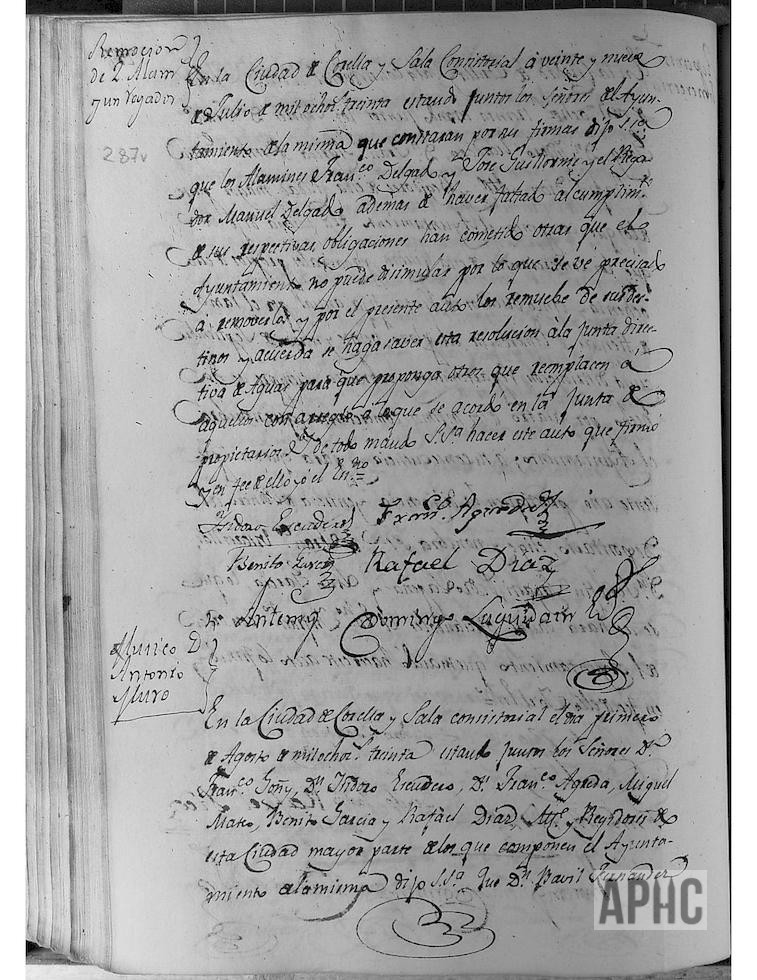 Remocion
de 2 Alam
y un Regador
287v
En la Ciudad de Corella y Sala Consistorial á veinte y nueve
de Julio de mil ochos.s treinta estando juntos los Señores del Ayun-
tamiento de la misma que constaran por sus firmas dijo S.S.a
que los Alamines Fran.co Delgado y José Guillorme y el Rega
dor Manuel Delgado ademas de haver faltado al cumplim.to
de sus respectivas obligaciones han cometido otras que el
Ayuntamiento no puede disimular por lo que se ve precisado
á removerlos y por el presente auto los remuebe de sus des-
tinos y acuerda se haga saver esta resolucion á la junta direc-
tiva de Aguas para que proponga otros que reemplacen á
aquellos con arreglo á lo que se acordó en la junta de
propietarios y de todo mandó S.S.a hacer este auto que firmó
y en fee de ello yo el Es.no
Isidoro Escudero Fran.co Agreda
Benito Garcia Rafael Diaz
Ante mi Domingo Luquin
Munico D.
Antonio
Muro
En la Ciudad de Corella y Sala consistorial el dia primero
de Agosto de mil ochos.s treinta estando juntos los Señores D.n
Fran.co Goñy, D.n Isidoro Escudero, D.n Fran.co Agreda, Miguel
Mateo, Benito Garcia y Rafael Diaz, Al.e y Regidores de
esta Ciudad mayor parte de los que componen el Ayunta-
miento de la misma dijo S.S.a Que D.n Bavil Fernandez
APHC